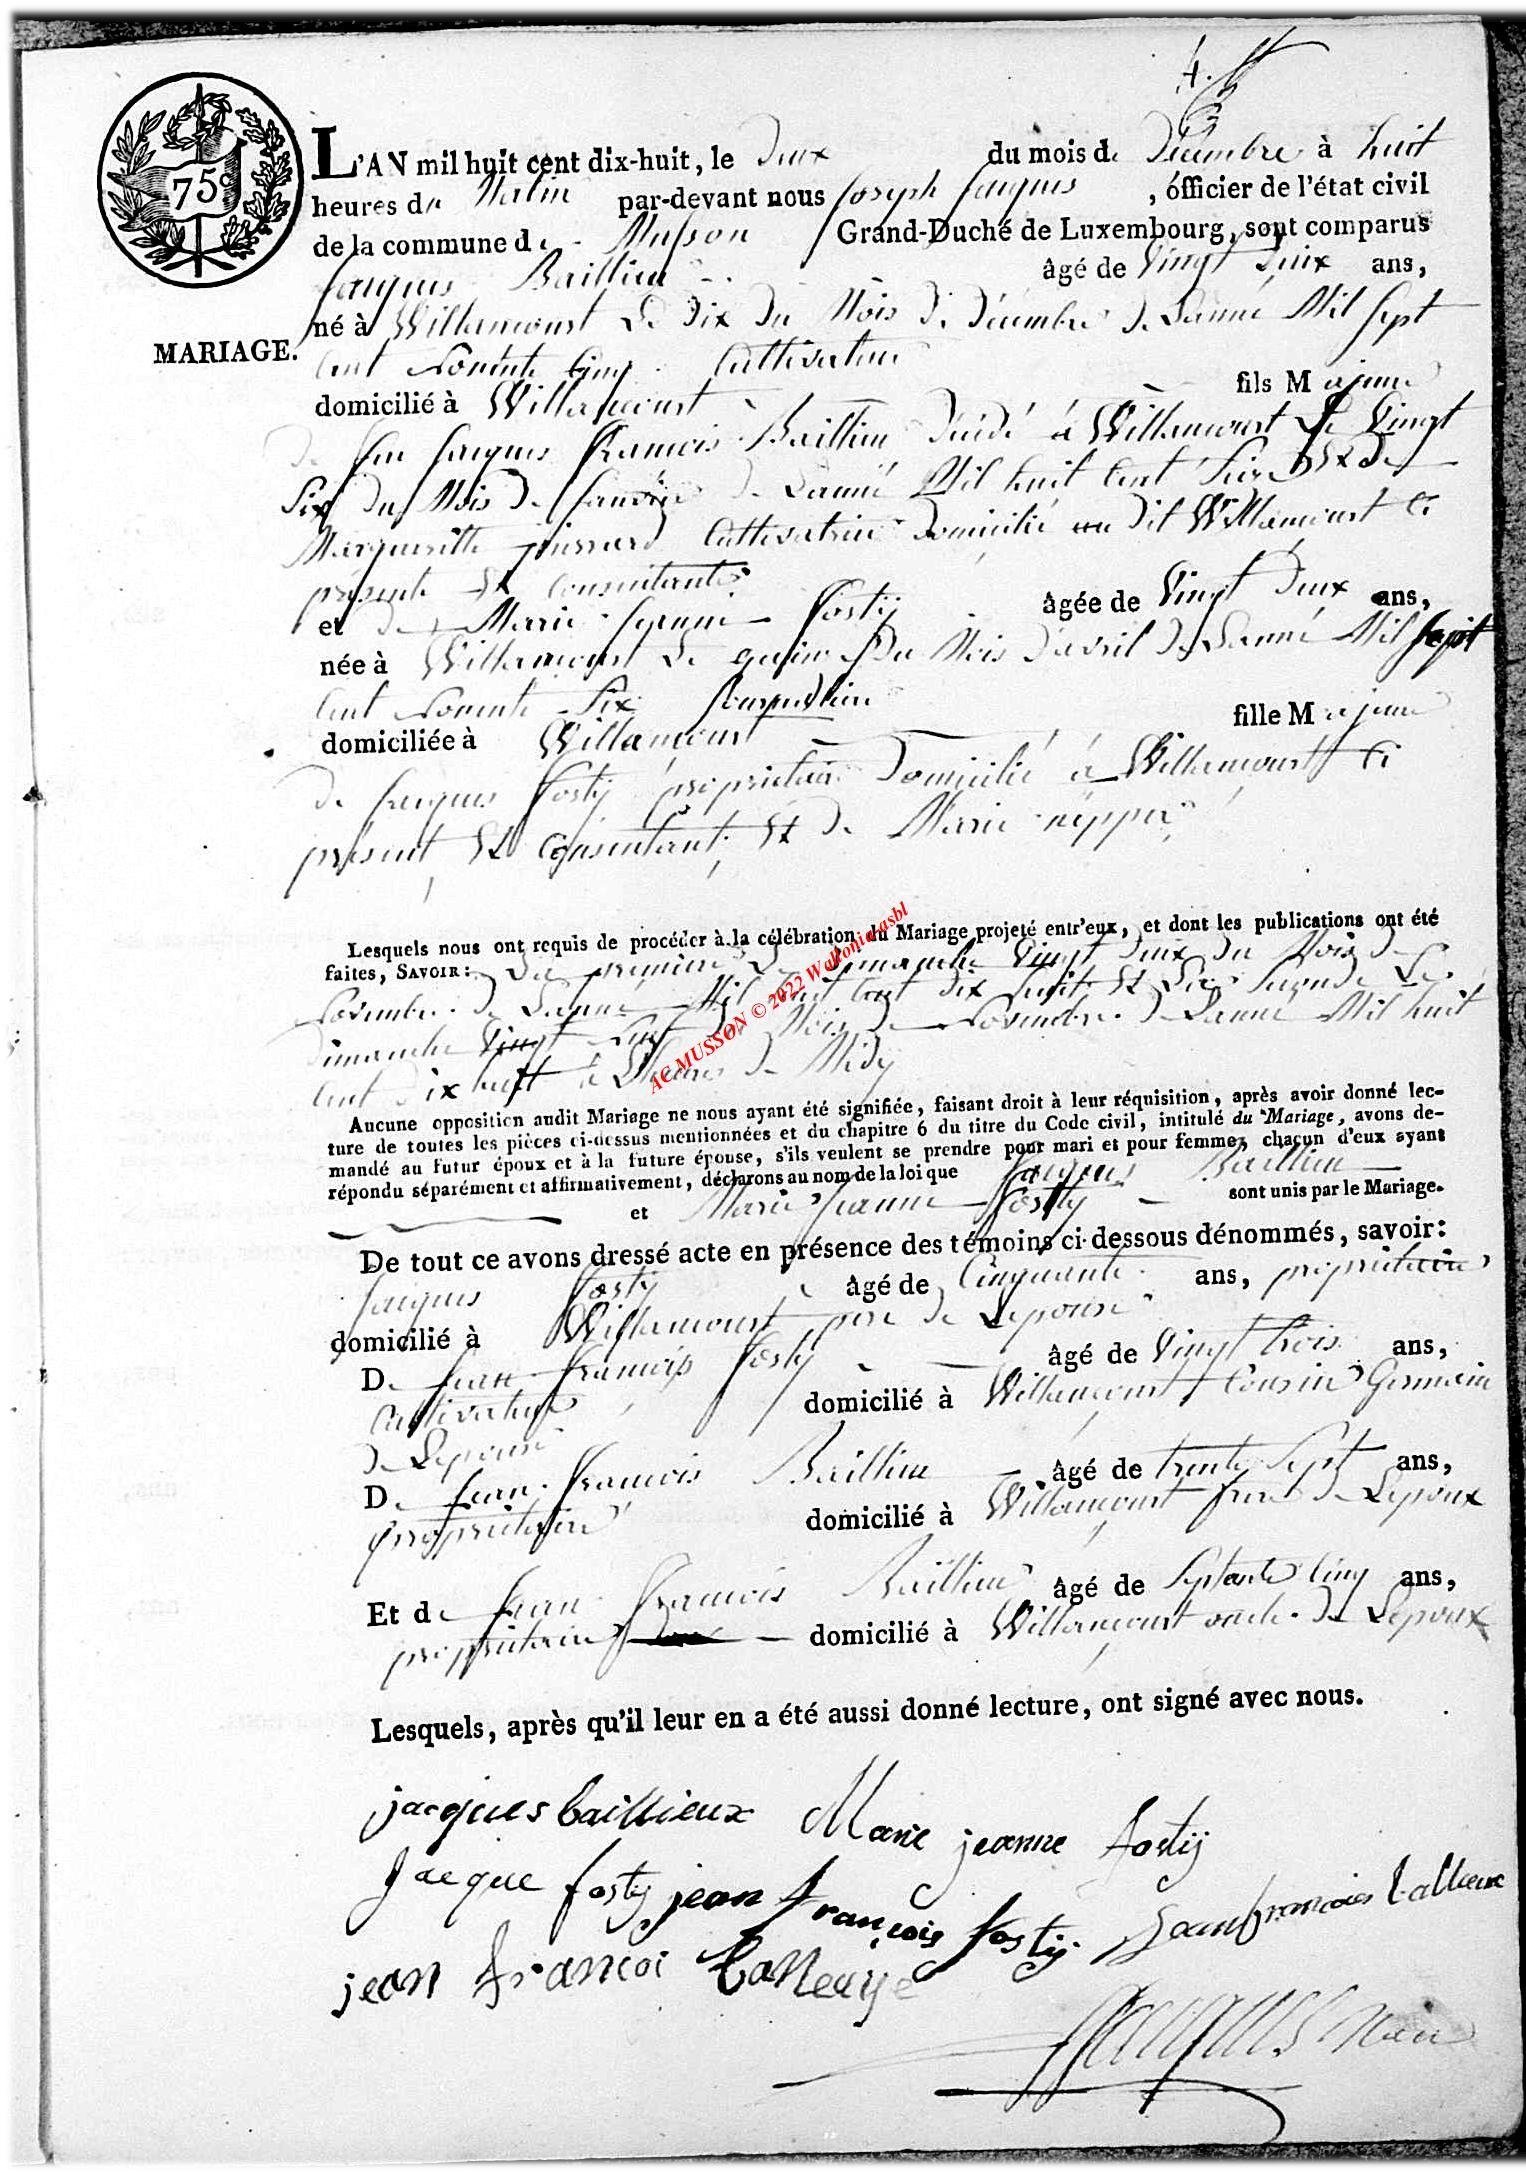 4.
75c
L'AN mil huit cent dix-huit, le Deux du mois de Décembre à huit
heures du Matin par-devant nous Joseph Jacques, officier de l'état civil
de la commune de Musson Grand-Duché de Luxembourg, sont comparus
Jacques Baillieu âgé de Vingt Deux ans,
né à Willancourt Le Dix Du Mois De Décembre De Lanné Mil Sept
Cent Nonente Cinq Cultivateur
MARIAGE.
domicilié à Willancourt fils Majeure
De feu Jacques Francois Baillieu Décédé à Willancourt Le Vingt
Six Du Mois De Janvier De Lanné Mil huit Cent Et De
Margueritte Cultivatrice Domicilié au Dit Willancourt Ci
présente Et Consentante
et de Marie Jeanne Fostÿ âgée de Vingt Deux ans,
née à Willancourt Le quinze Du Mois D'avril De Lanné Mil Sept
Cent Nonente Six
domiciliée à Willancourt fille Majeure
De Jacques Fostÿ propriétaire Domicilié à Willancourt Ci
présent Et Consentant Et De Marie
Lesquels nous ont requis de procéder à la célébration du Mariage projeté entr'eux, et dont les publications ont été
faites, SAVOIR: La premiere Le Dimanche Vingt Deux Du Mois De
Novembre De Lanné Mil huit Cent Dix huit Et La Seconde Le
Dimanche Vingt Neuf Du Mois De Novembre De Lanné Mil huit
Cent Dix huit à Lheure De Midy
AC MUSSON © 2022 Wallonia-asbl
Aucune opposition audit Mariage ne nous ayant été signifiée, faisant droit à leur réquisition, après avoir donné lec-
ture de toutes les pièces ci-dessus mentionnées et du chapitre 6 du titre du Code civil, intitulé du Mariage, avons de-
mandé au futur époux et à la future épouse, s'ils veulent se prendre pour mari et pour femme; chacun d'eux ayant
répondu séparément et affirmativement, déclarons au nom de la loi que Jacques Baillieu
et Marie Jeanne Fostÿ sont unis par le Mariage.
De tout ce avons dressé acte en présence des témoins ci-dessous dénommés, savoir:
Jacques Fostÿ âgé de Cinquante ans, propriétaire
domicilié à Willancourt pere De Lepouse
De Jean Francois Fostÿ âgé de Vingt trois ans,
Cultivateur domicilié à Willancourt Cousin Germain
De Lepouse
De Jean Francois Baillieu âgé de trente Sept ans,
propriétaire domicilié à Willancourt frere De Lepoux
Et de Jean Francois Baillieu âgé de Septante Cinq ans,
propriétaire domicilié à Willancourt oncle De Lepoux
Lesquels, après qu'il leur en a été aussi donné lecture, ont signé avec nous.
jacques baillieux Marie jeanne fostÿ
jacque fostÿ jean françois fostÿ jean francois ballieux
jean francoi
Jacques Maire